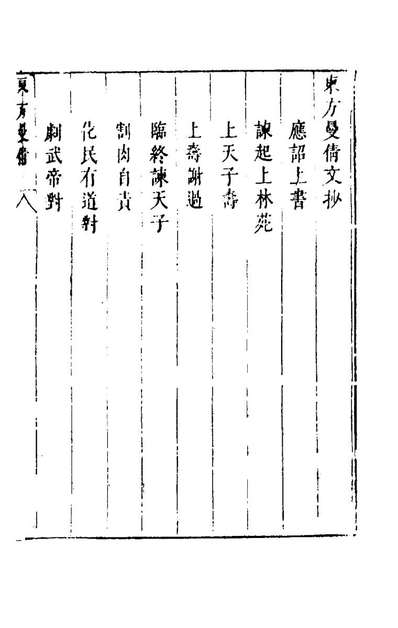 東方曼倩文抄
應詔上書
諫起上林苑
上天子壽
上壽謝過
臨終諫天子
割肉自責
化民有道對
劇武帝對
東方曼倩